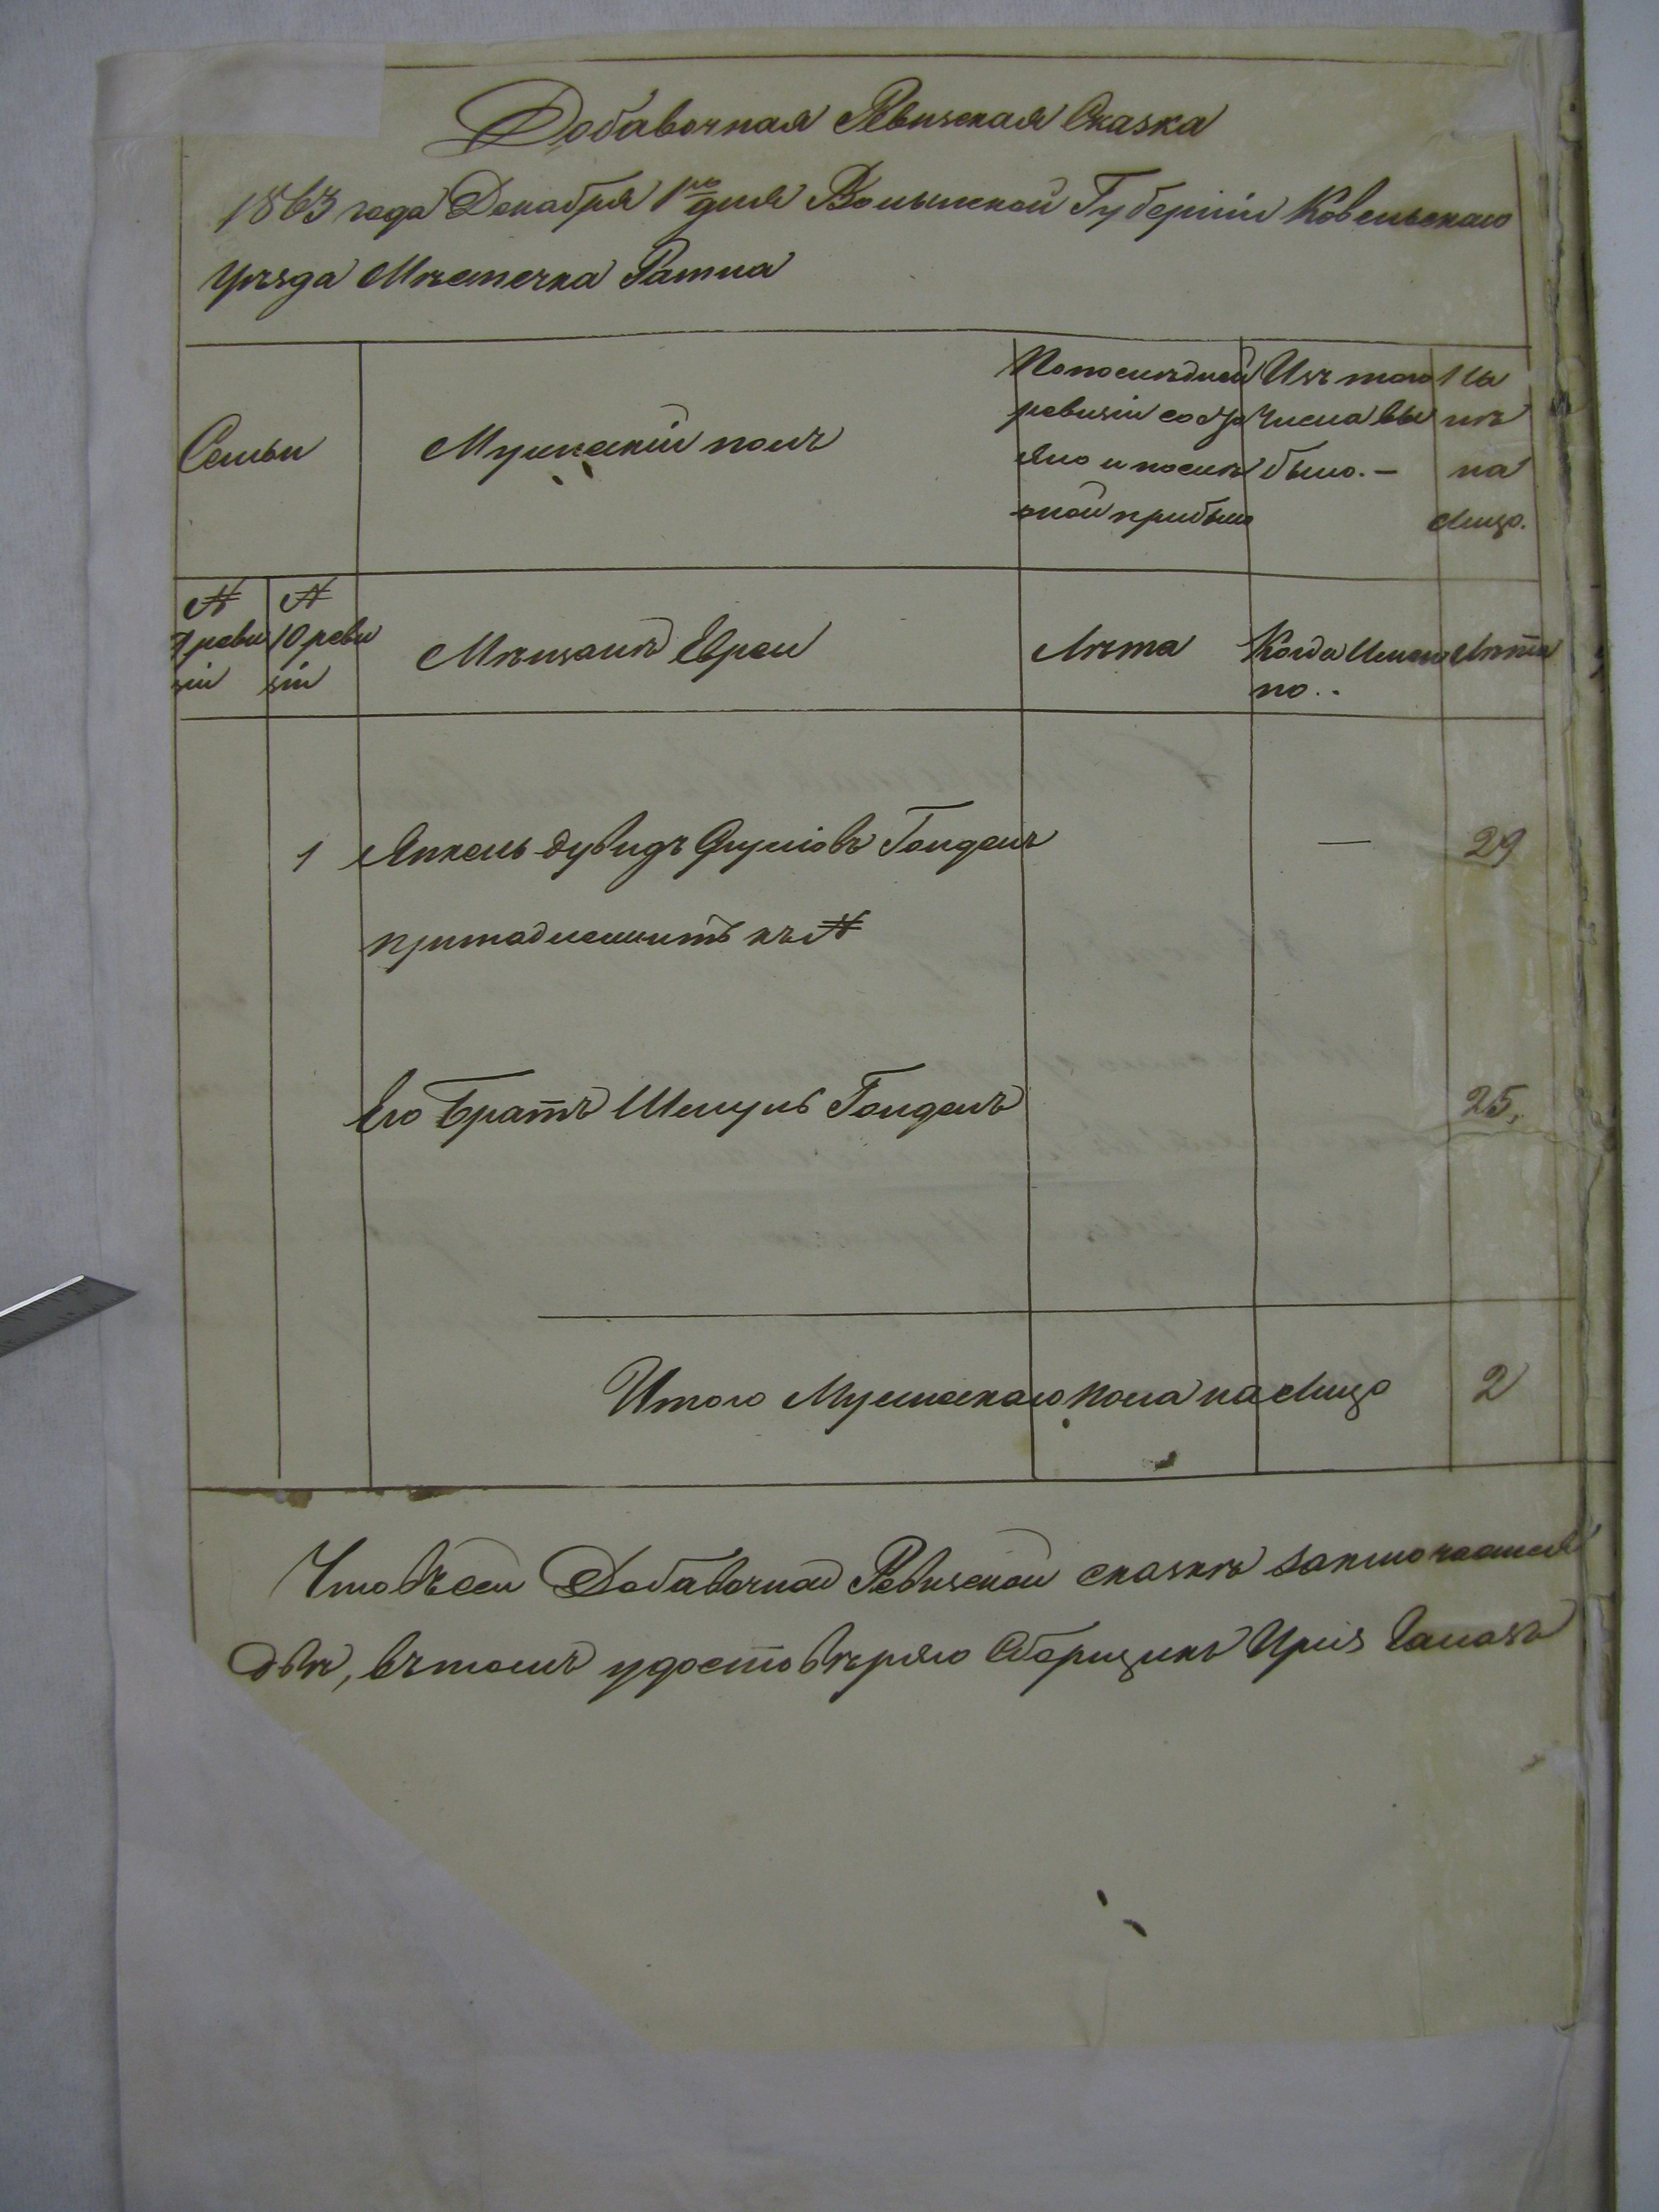 Добавочная Ревизская Сказка
1863 года Декабря 1го дня Волынской Губерніи Ковельскаго
Уѣзда Мѣстечка Ратна
Семьи
Мужескій полъ
Попослѣдней
ревизіи состо
яло и послѣ
оной прибыло
Изъ того
числа вы
было. —
На
лѣ
на
Лицо.
№
9 реви
зіи
№
10 реви
зіи
Мѣщанъ Евреи
Лѣта
Когда Имен
но..
Лѣта
1 Янкель Дувидъ Голделъ — 29
принадлежитъ къ №
Его Братъ Шмуль Голделъ 25.
Итого Мужескаго пола на Лицо 2
Что въ сей Добавочной Ревизской сказкѣ заключается
двѣ, въ томъ удостовѣряю Сборщикъ